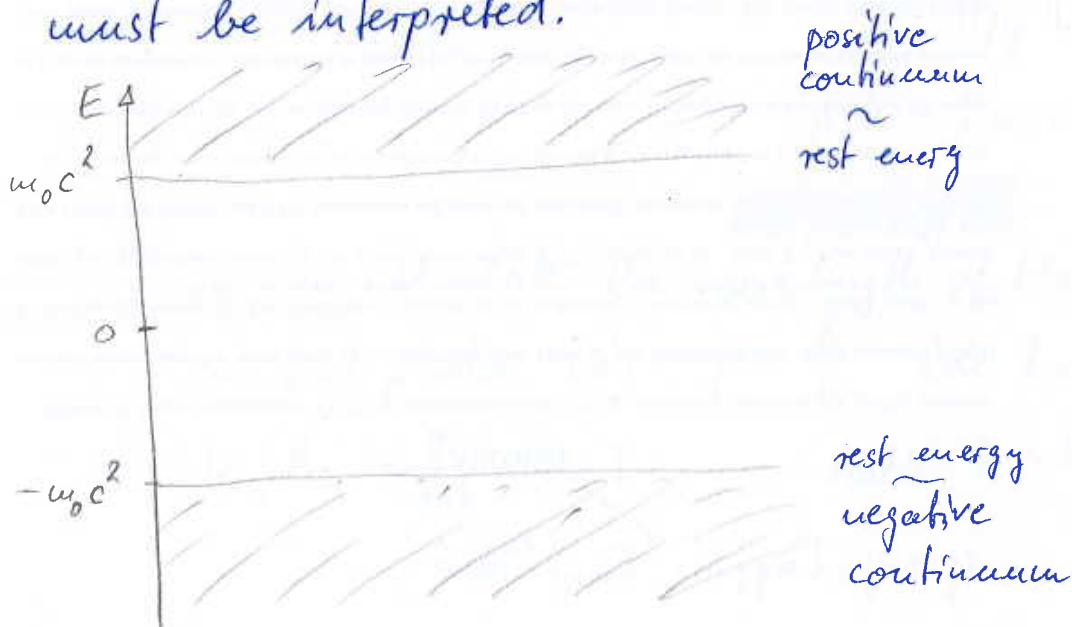 must be interpreted.
positive
continuum
~
rest energy
E
m₀c²
0
-m₀c²
rest energy
~
negative
continuum